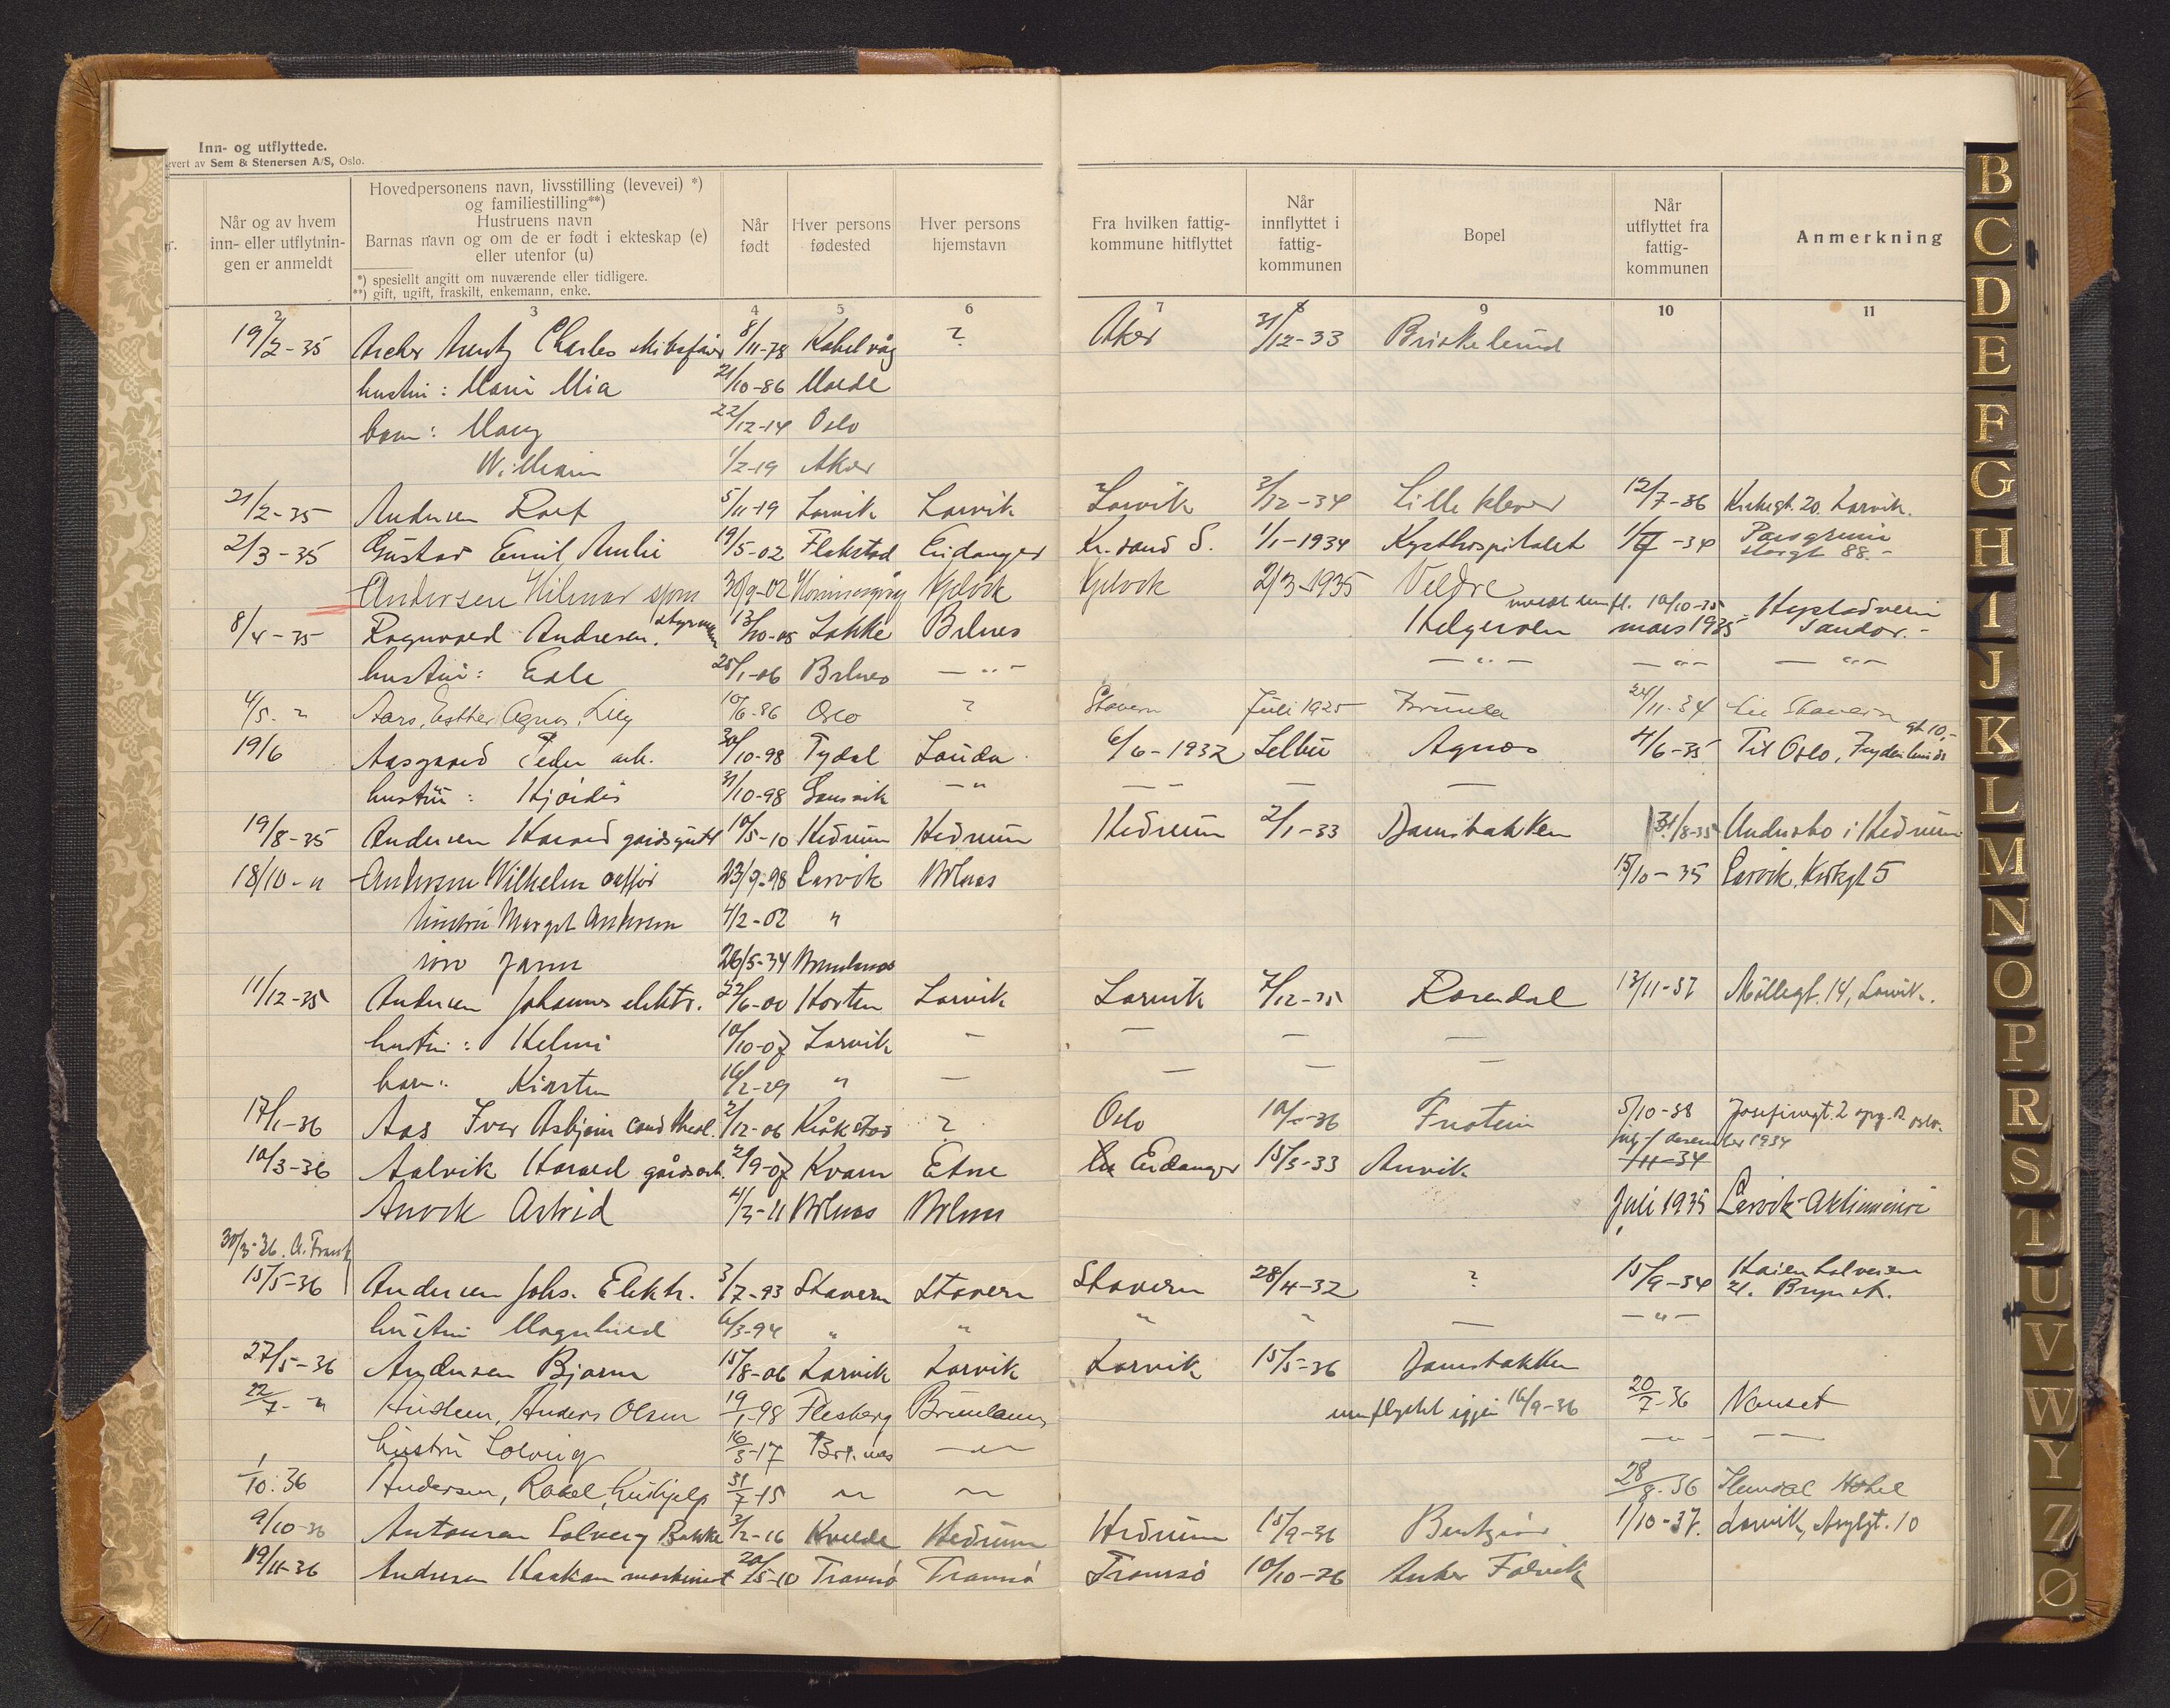 Inn- og utflyttede.
evert av Sem & Stenersen A/S, Oslo.
Når og av hvem inn- eller utflytnin-gen er anmeldt
Hovedpersonens navn, livsstilling (levevei) *)
og familiestilling**)
Hustruens navn
Barnas navn og om de er født i ekteskap (e)
eller utenfor (u)
*) spesiellt angitt om nuværende eller tidligere.
**) gift, ugift, fraskilt, enkemann, enke.
Når født
Hver persons fødested
Hver persons hjemstavn
Fra hvilken fattig-kommune hitflyttet
Når innflyttet i fattig-kommunen
Bopel
Når utflyttet fra fattig-kommunen
Anmerkning
2 3 4 5 6 7 8 9 10 11
19/2-35 Charles 8/11-78 Kabelvåg ? Aker 31/12-33 Briskelund
hustru: Marie Mia 21/10-86 Molde
barn: Mary 22/12-14 Oslo
William 1/2-19 Aker
21/2-35 Andersen Rolf 5/11-19 Larvik Larvik Larvik 3/12-34 Lille Klever 12/7-36 Kirkegt. 20. Larvik.
2/3-35 Gustav Emil 19/5-02 Flakstad Eidanger Kr.sand S. 1/1-1934 Kysthospitalet -34 Porsgrunn
Storgt 88.-
Andersen Hilmar 30/9-02 Honningsvåg Gjøvik Gjøvik 2/3-1935 Veldre
10/10-35
8/4-35 Ragnvald Andresen. styrmann 13/10-05 Brlnes Helgeroen mars 1935 Sandar.-
hustru: Edle 25/1-06 Brlnes - " - - " - - " - - " -
4/5 - " Aars, Esther Agnes, Lilly 10/6-86 Oslo ? Stavern Juli 1925 Brunla 24/11-34 Stavern
19/6 Aasgaard Peder arb. 30/10-98 Tydal 6/6-1932 Selbu Agnes 4/6-35 Til Oslo, gt 10,-
hustru: Hjørdis 31/10-98 - "
19/8-35 Andersen Harald gårdsgutt 10/5-10 Hedrum Hedrum Hedrum 2/1-33 Damsbakken 31/8-35 Andersbo i Hedrum
18/10- " Andersen Wilhelm 23/9-98 Larvik Brlnes 15/10-35 Larvik, Kirkegt 5
hustru Margot Andersen 4/2-02 "
26/5-34 Brunlanes
11/12-35 Andersen Johannes elektr. 22/6-00 Horten Larvik Larvik 7/12-35 Rosendal 13/11-37 Møllegt. 14, Larvik.
hustru: Helmi 10/10-07 Larvik -
barn: Kirsten 16/2-29 " -
17/1-36 Aas Iver Asbjørn cand theol. 2/12-06 Kråkstad ? Oslo 10/1-36 Fristein 5/10-38 Josefinegt. 2 opg. 12 Oslo.
10/3-36 Aalvik Harald gårdsarb. 2/9-07 Kvam Etne Eidanger 15/3-33 Anvik 11-34 desember 1934
Anvik Astrid 4/3-11 Brlnes Brlnes Juli 1935 Larvik
30/3-36.
15/5-36 Andersen Johs. Elektr. 3/7-93 Stavern Stavern Stavern 28/4-32 ? 15/9-34
hustru Magnhild 6/3-94 " " " " - - " -
27/5-36 Andersen Bjarne 15/8-06 Larvik Larvik Larvik 15/5-36 Damsbakken
22/7- " Anders Olsen 19/1-98 Flesberg Brunlanes innflyttet igjen 16/9-36 20/7-36 Nanset
hustru Solveig 16/3-17 Brl.nes - " -
1/10.36 Andersen, Rakel, hushjelp 31/7-15 28/8-36 Hotel
9/10-36 Antonsen Solveig Bakke 3/2-16 Kvelde Hedrum Hedrum 15/9-36 1/10-37. Larvik, Asylgt. 10
19/11-36 Andersen Haakon maskinist 20/5-10 Tromsø Tromsø Tromsø 10/10-36
B
C
D
E
F
G
H
I
J
K
L
M
N
O
P
R
S
T
U
V
W
Y
Z
Ø